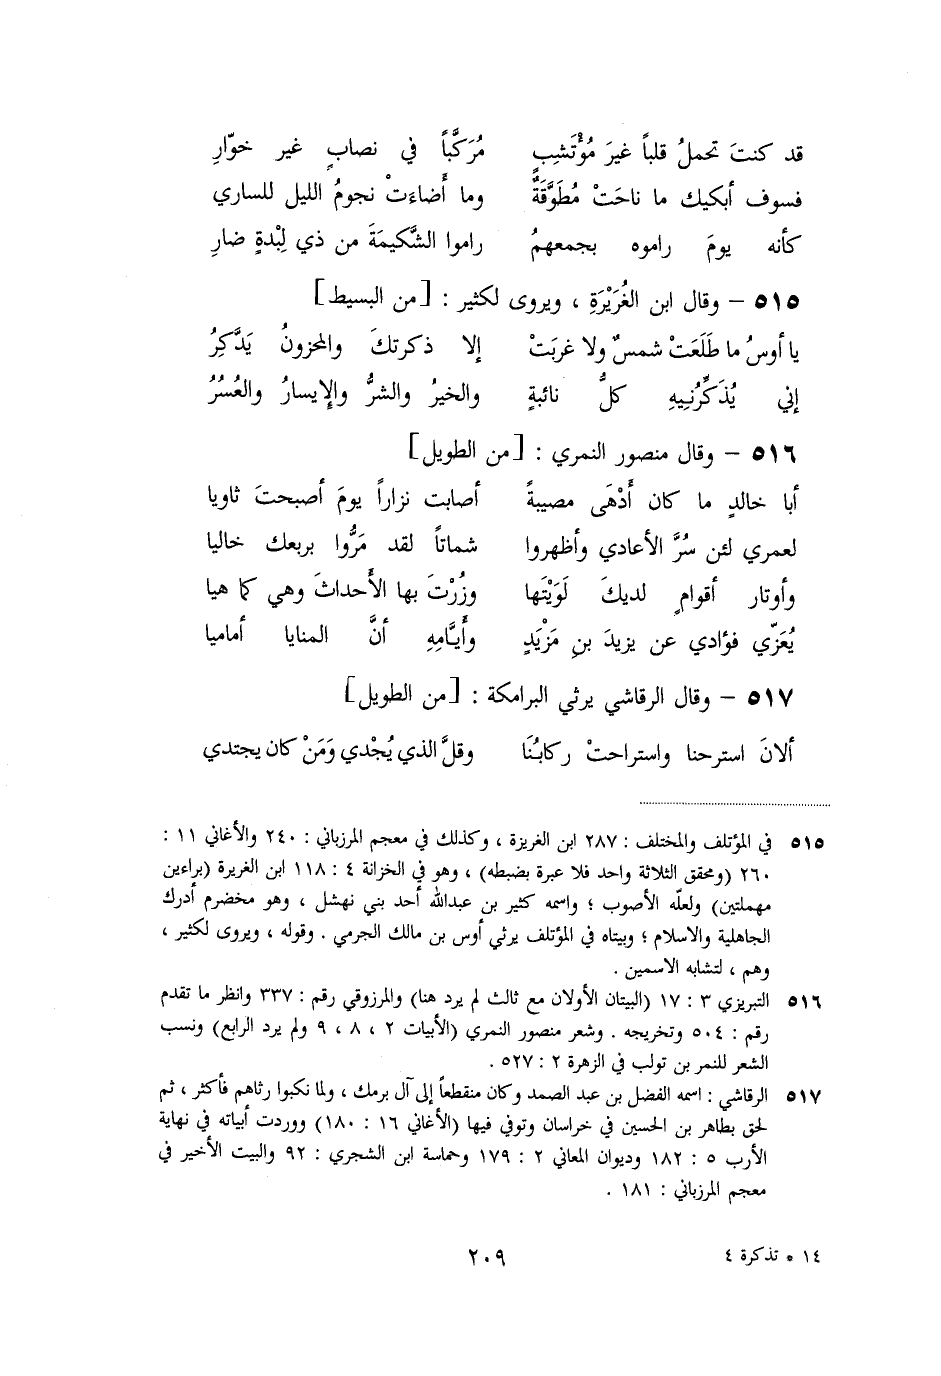 قد كنتَ تحملُ قلباً غيرَ مُؤْتَشِبٍ مُرَكَّباً في نصابٍ غير خوّارِ
فسوف أبكيك ما ناحَتْ مُطَوَّقَةٌ وما أَضاءَتْ نجومُ الليل للساري
كأنه يومَ راموه بجمعهمُ راموا الشَّكيمَةَ من ذي لِبْدةٍ ضارِ
٥١٥ – وقال ابن الغُرَيْرَةِ ، ويروى لكثير : [من البسيط]
يا أوسُ ما طَلَعَتْ شمسٌ ولا غربَتْ إلا ذكرتكَ والمحزونُ يَدَّكِرُ
إني يُذَكِّرُنيهِ كلُّ نائبةٍ والخيرُ والشرُّ والإيسارُ والعُسُرُ
٥١٦ – وقال منصور النمري : [من الطويل]
أبا خالدٍ ما كان أَدْهَى مصيبةً أصابت نزاراً يومَ أصبحتَ ثاويا
لعمري لئن سُرَّ الأعادي وأظهروا شماتاً لقد مَرُّوا بربعك خاليا
وأوتار أقوامٍ لديكَ لَوَيْتَها وزُرْتَ بها الأَحداثَ وهي كما هيا
يُعَزّي فؤادي عن يزيدَ بنِ مَزْيَدٍ وأَيَّامِهِ أنَّ المنايا أماميا
٥١٧ – وقال الرقاشي يرثي البرامكة : [من الطويل]
ألانَ استرحنا واستراحتْ ركابُنَا وقلَّ الذي يُجْدي وَمَنْ كان يجتدي
٥١٥ في المؤتلف والمختلف : ٢٨٧ ابن الغريزة ، وكذلك في معجم المرزباني : ٢٤٠ والأغاني ١١ :
٢٦٠ (ومحقق الثلاثة واحد فلا عبرة بضبطه) ، وهو في الخزانة ٤ : ١١٨ ابن الغريرة (براءين
مهملتين) ولعلّه الأصوب ؛ واسمه كثير بن عبدالله أحد بني نهشل ، وهو مخضرم أدرك
الجاهلية والاسلام ؛ وبيتاه في المؤتلف يرثي أوس بن مالك الجرمي . وقوله ، ويروى لكثير ،
وهم ، لتشابه الاسمين .
٥١٦ التبريزي ٣ : ١٧ (البيتان الأولان مع ثالث لم يرد هنا) والمرزوقي رقم : ٣٣٧ وانظر ما تقدم
رقم : ٥٠٤ وتخريجه . وشعر منصور النمري (الأبيات ٢ ، ٨ ، ٩ ولم يرد الرابع) ونسب
الشعر للنمر بن تولب في الزهرة ٢ : ٥٢٧ .
٥١٧ الرقاشي : اسمه الفضل بن عبد الصمد وكان منقطعاً إلى آل برمك ، ولما نكبوا رثاهم فأكثر ، ثم
لحق بطاهر بن الحسين في خراسان وتوفي فيها (الأغاني ١٦ : ١٨٠) ووردت أبياته في نهاية
الأرب ٥ : ١٨٢ وديوان المعاني ٢ : ١٧٩ وحماسة ابن الشجري : ٩٢ والبيت الأخير في
معجم المرزباني : ١٨١ .
١٤ * تذكرة ٤ ٢٠٩